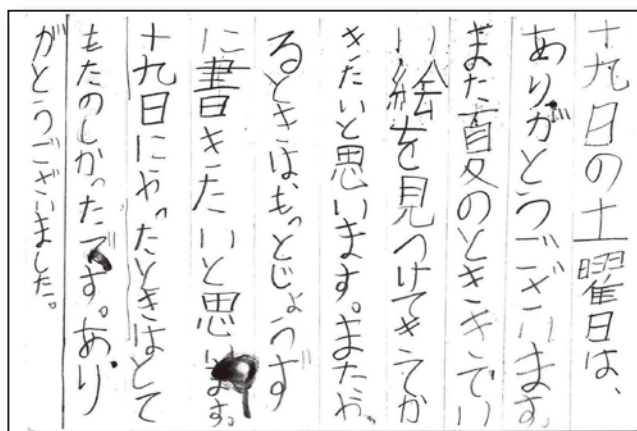 十九日の土曜日は、
ありがとうございます。
また夏のときききでい
い絵を見つけてきてか
きたいと思います。またや
るときは、もっとじょうず
に書きたいと思います。
十九日にやったときはとて
もたのしかったです。あり
がとうございました。